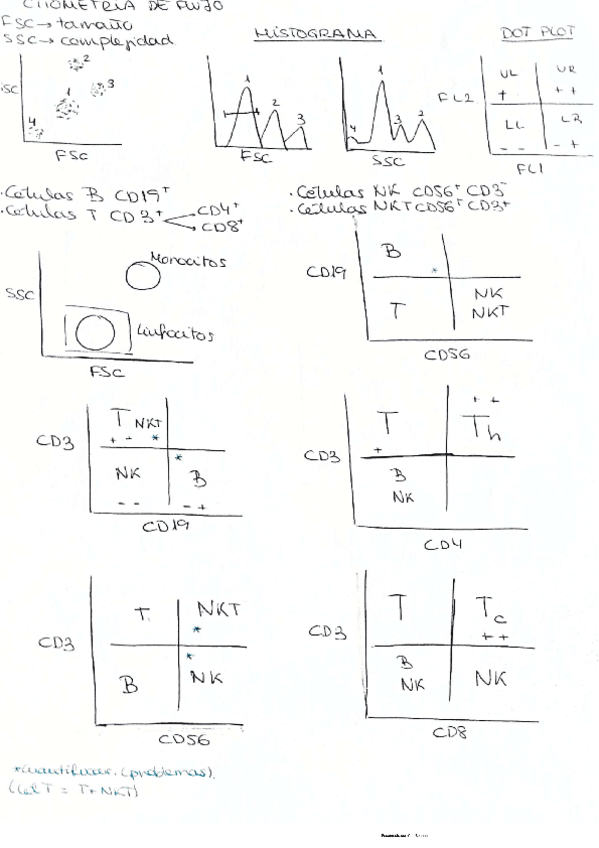 CITOMETRÍA DE FLUJO
FSC → tamaño
SSC → complejidad
HISTOGRAMA
DOT PLOT
SSC
1
2
3
4
FSC
1
2
3
FSC
4
1
3
2
SSC
FL2
UL
+
UR
+ +
LL
- -
LR
- +
FL1
· Células B CD19+
· Células T CD3+
CD4+
CD8+
· Células NK CD56+ CD3-
· Células NKT CD56+ CD3+
SSC
Monocitos
Linfocitos
FSC
CD19
B
*
T
NK
NKT
CD56
CD3
T NKT
+ - *
NK
- -
*
B
- +
CD19
CD3
T
+
+ +
Th
B
NK
CD4
CD3
T
NKT
*
B
*
NK
CD56
CD3
T
Tc
++
B
NK
NK
CD8
*cuantificar. (problemas).
(cel T = T + NKT)